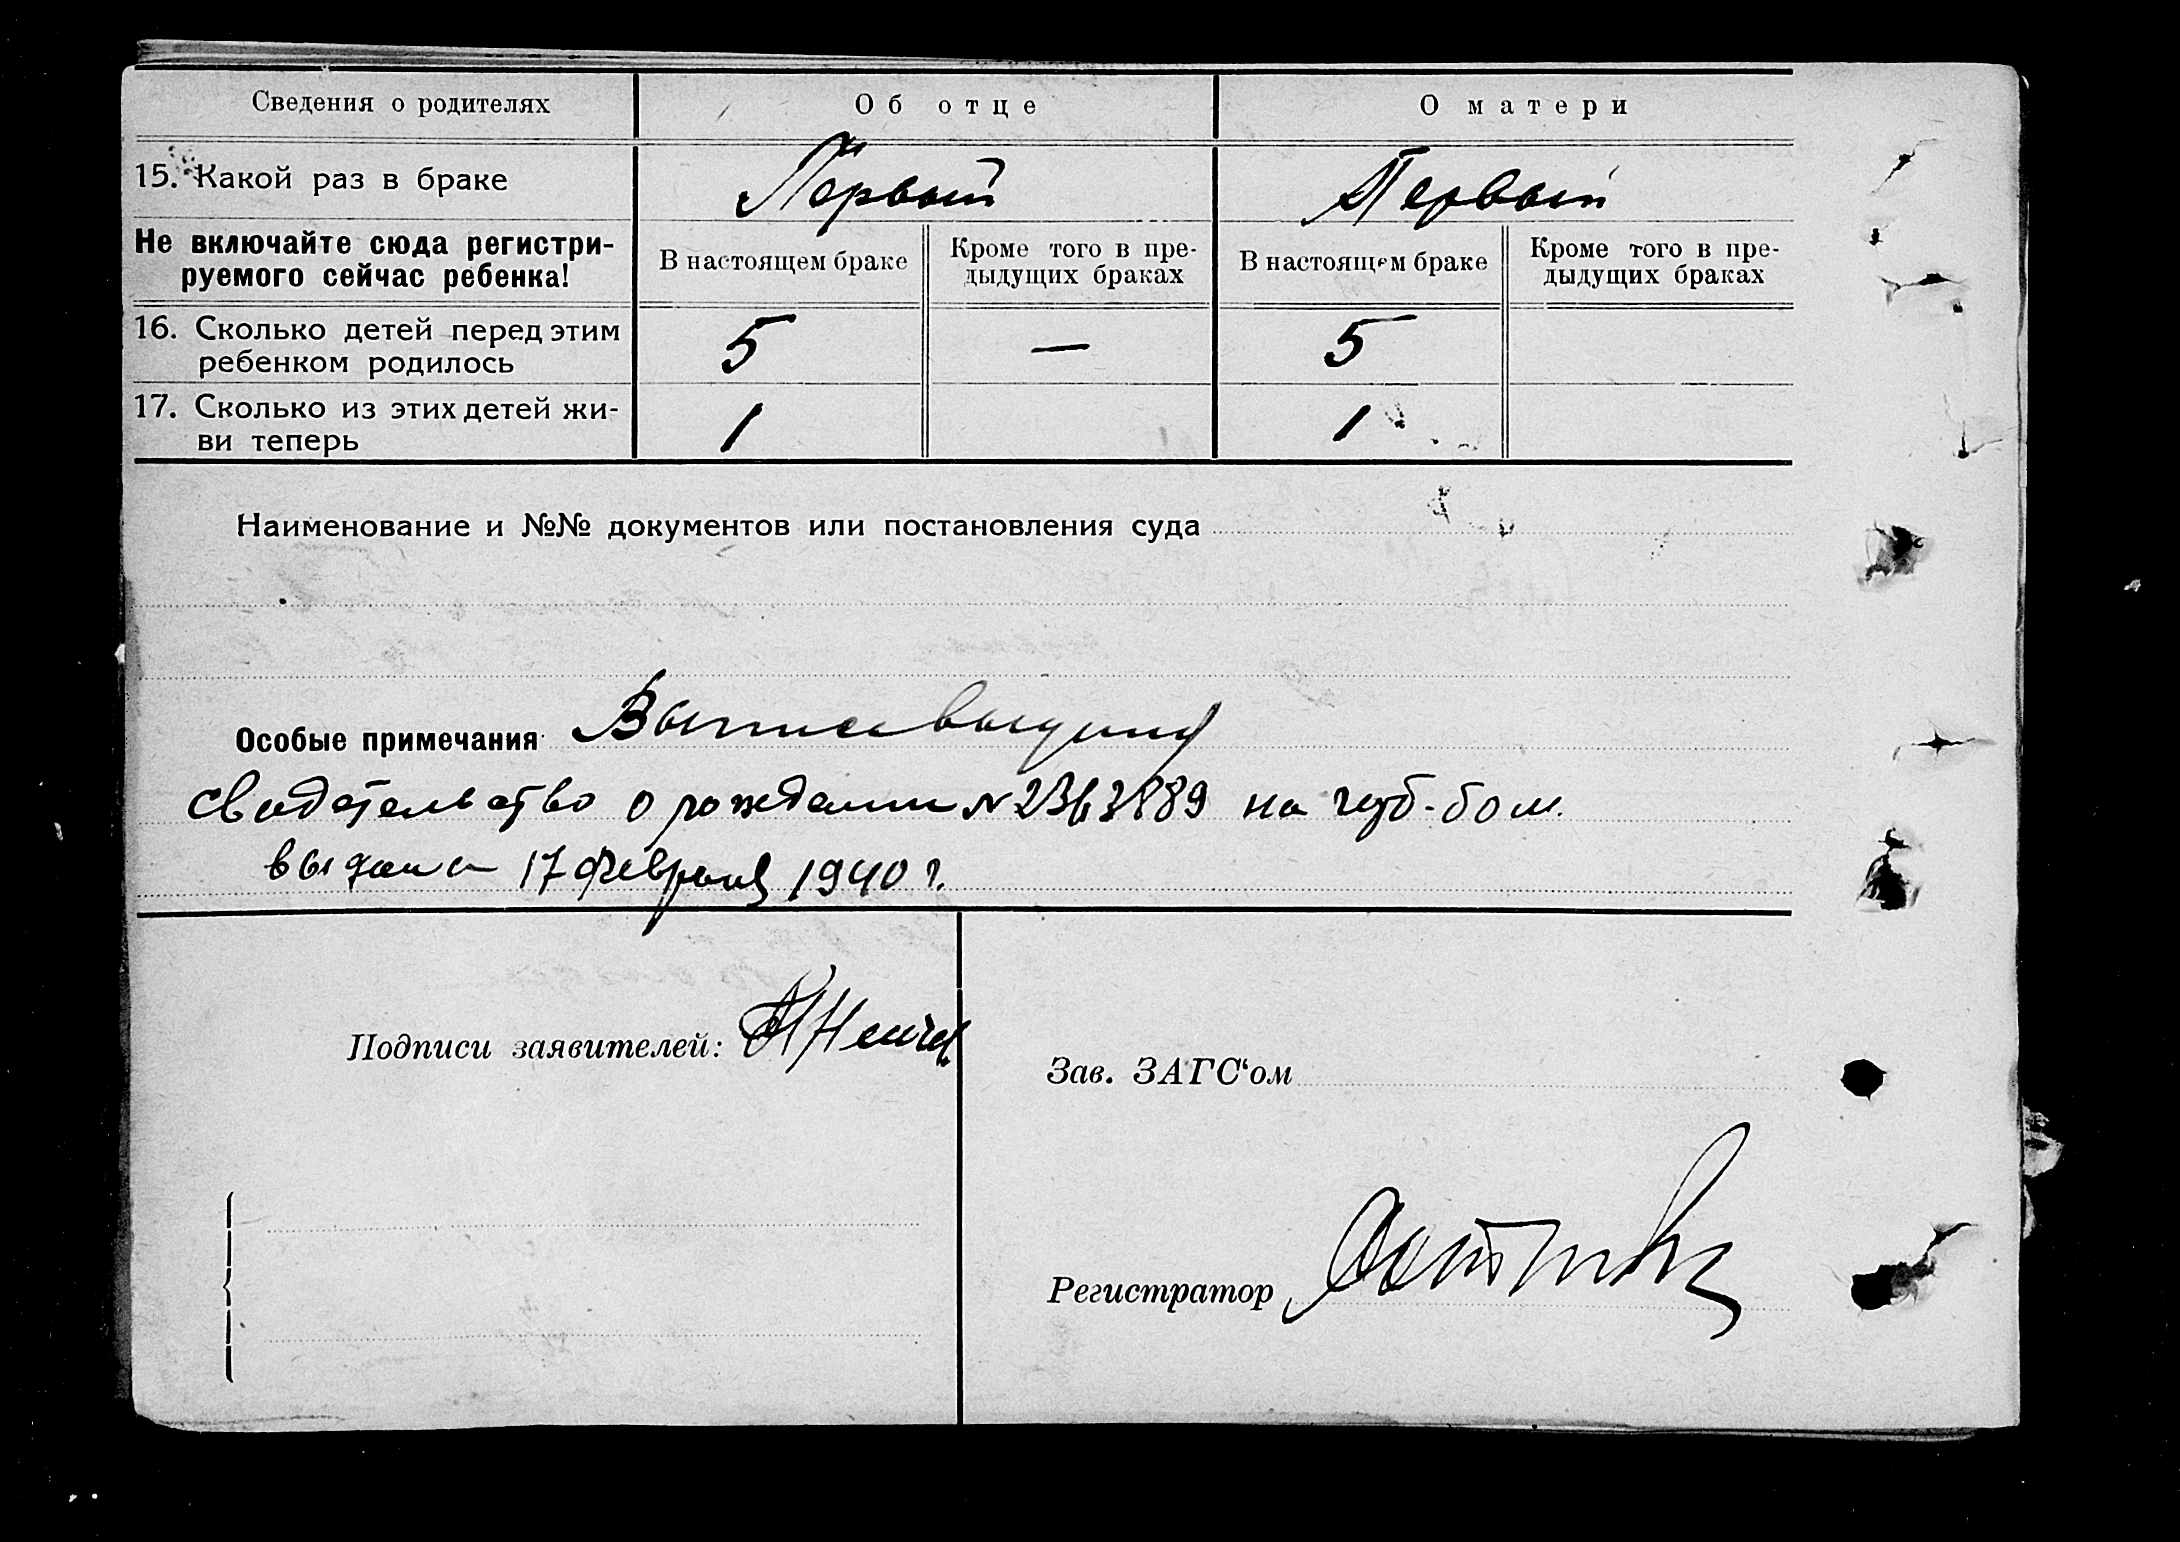 Сведения о родителях Об отце О матери
15. Какой раз в браке Первый Первый
Не включайте сюда регистри-
руемого сейчас ребенка!
В настоящем браке Кроме того в пре-
дыдущих браках
В настоящем браке Кроме того в пре-
дыдущих браках
16. Сколько детей перед этим
ребенком родилось 5 — 5
17. Сколько из этих детей жи-
ви теперь 1 1
Наименование и №№ документов или постановления суда
Особые примечания
свидетельство о рождении № на
выдано 17 февраля 1940 г.
Подписи заявителей:
Зав. ЗАГС‘ом
Регистратор